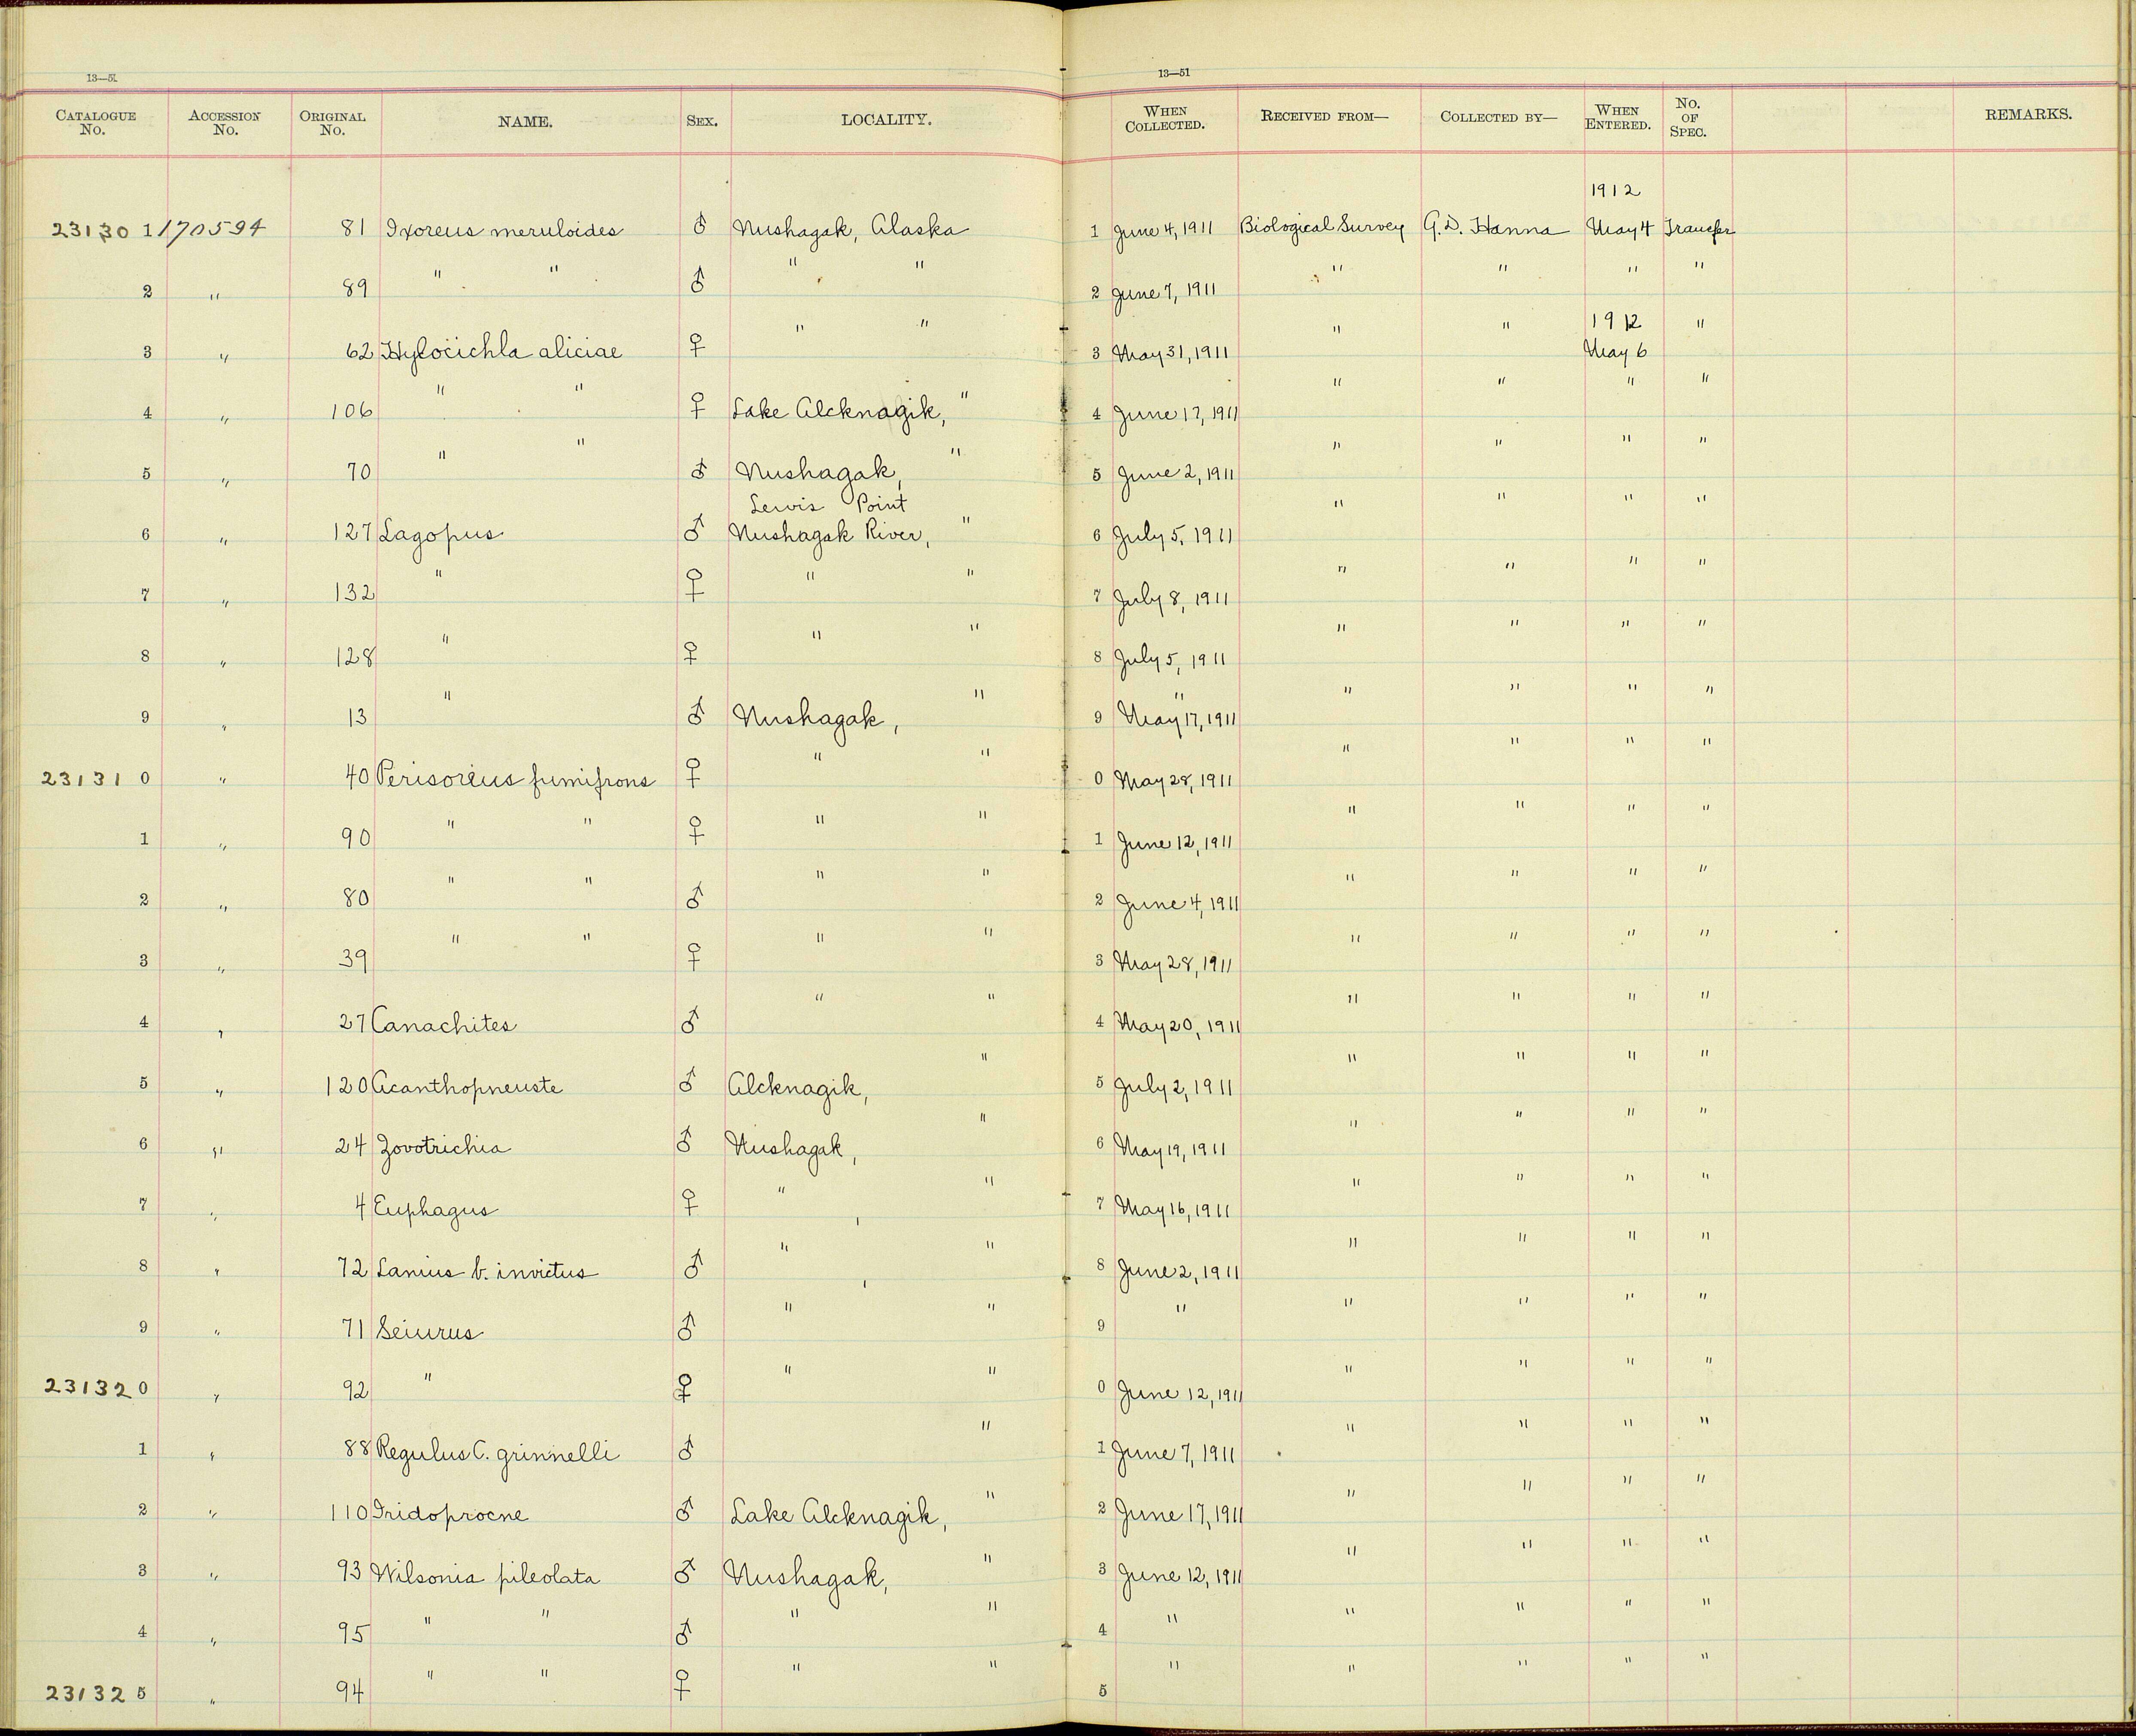 13—51 13—51
CATALOGUE No. ACCESSION No. ORIGINAL No. NAME. SEX. LOCALITY. WHEN COLLECTED. RECEIVED FROM— COLLECTED BY— WHEN ENTERED. No. OF SPEC. REMARKS.
1912
231301 170594 81 Ixoreus meruloides ♂ Nushagak, Alaska 1 June 4, 1911 Biological Survey G. D. Hanna May 4 Transfer
2 " 89 " " ♂ " " 2 June 7, 1911 " " " "
1912
3 " 62 Hylocichla aliciae ♀ " " 3 May 31, 1911 " " May 6 "
4 " 106 " " ♀ Lake Alcknagik, " 4 June 17, 1911 " " " "
5 " 70 " " ♂ Nushagak, " 5 June 2, 1911 " " " "
Lewis Point
6 " 127 Lagopus ♂ Nushagak River, " 6 July 5, 1911 " " " "
7 " 132 " ♀ " " 7 July 8, 1911 " " " "
8 " 128 " ♀ " " 8 July 5, 1911 " " " "
9 " 13 " ♂ Nushagak, " 9 " May 17, 1911 " " " "
231310 " 40 Perisoreus fumifrons ♀ " " 0 May 28, 1911 " " " "
1 " 90 " " ♀ " " 1 June 12, 1911 " " " "
2 " 80 " " ♂ " " 2 June 4, 1911 " " " "
3 " 39 " " ♀ " " 3 May 28, 1911 " " " "
4 " 27 Canachites ♂ " " 4 May 20, 1911 " " " "
5 " 120 Acanthopneuste ♂ Alcknagik, " 5 July 2, 1911 " " " "
6 " 24 Zovotrichia ♂ Nushagak, " 6 May 19, 1911 " " " "
7 " 4 Euphagus ♀ " , " 7 May 16, 1911 " " " "
8 " 72 Lanius b. invictus ♂ " , " 8 June 2, 1911 " " " "
9 " 71 Seiurus ♂ " " 9 " " " " "
231320 " 92 " ♀ " " 0 June 12, 1911 " " " "
1 " 88 Regulus C. grinnelli ♂ " 1 June 7, 1911 " " " "
2 " 110 Iridoprocne ♂ Lake Alcknagik, " 2 June 17, 1911 " " " "
3 " 93 Wilsonia pileolata ♂ Nushagak, " 3 June 12, 1911 " " " "
4 " 95 " " ♂ " " 4 " " " " "
231325 " 94 " " ♀ " " 5 " " " " "